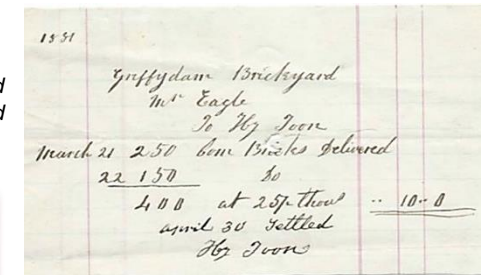 d
d
1881
Griffydam Brickyard
Mr Eagle
To Hy Toon
March 21 250 Com Bricks Delivered
22 150 Do
400 at 25/- thous .. 10 .. 0
april 30 Settled
Hy Toon